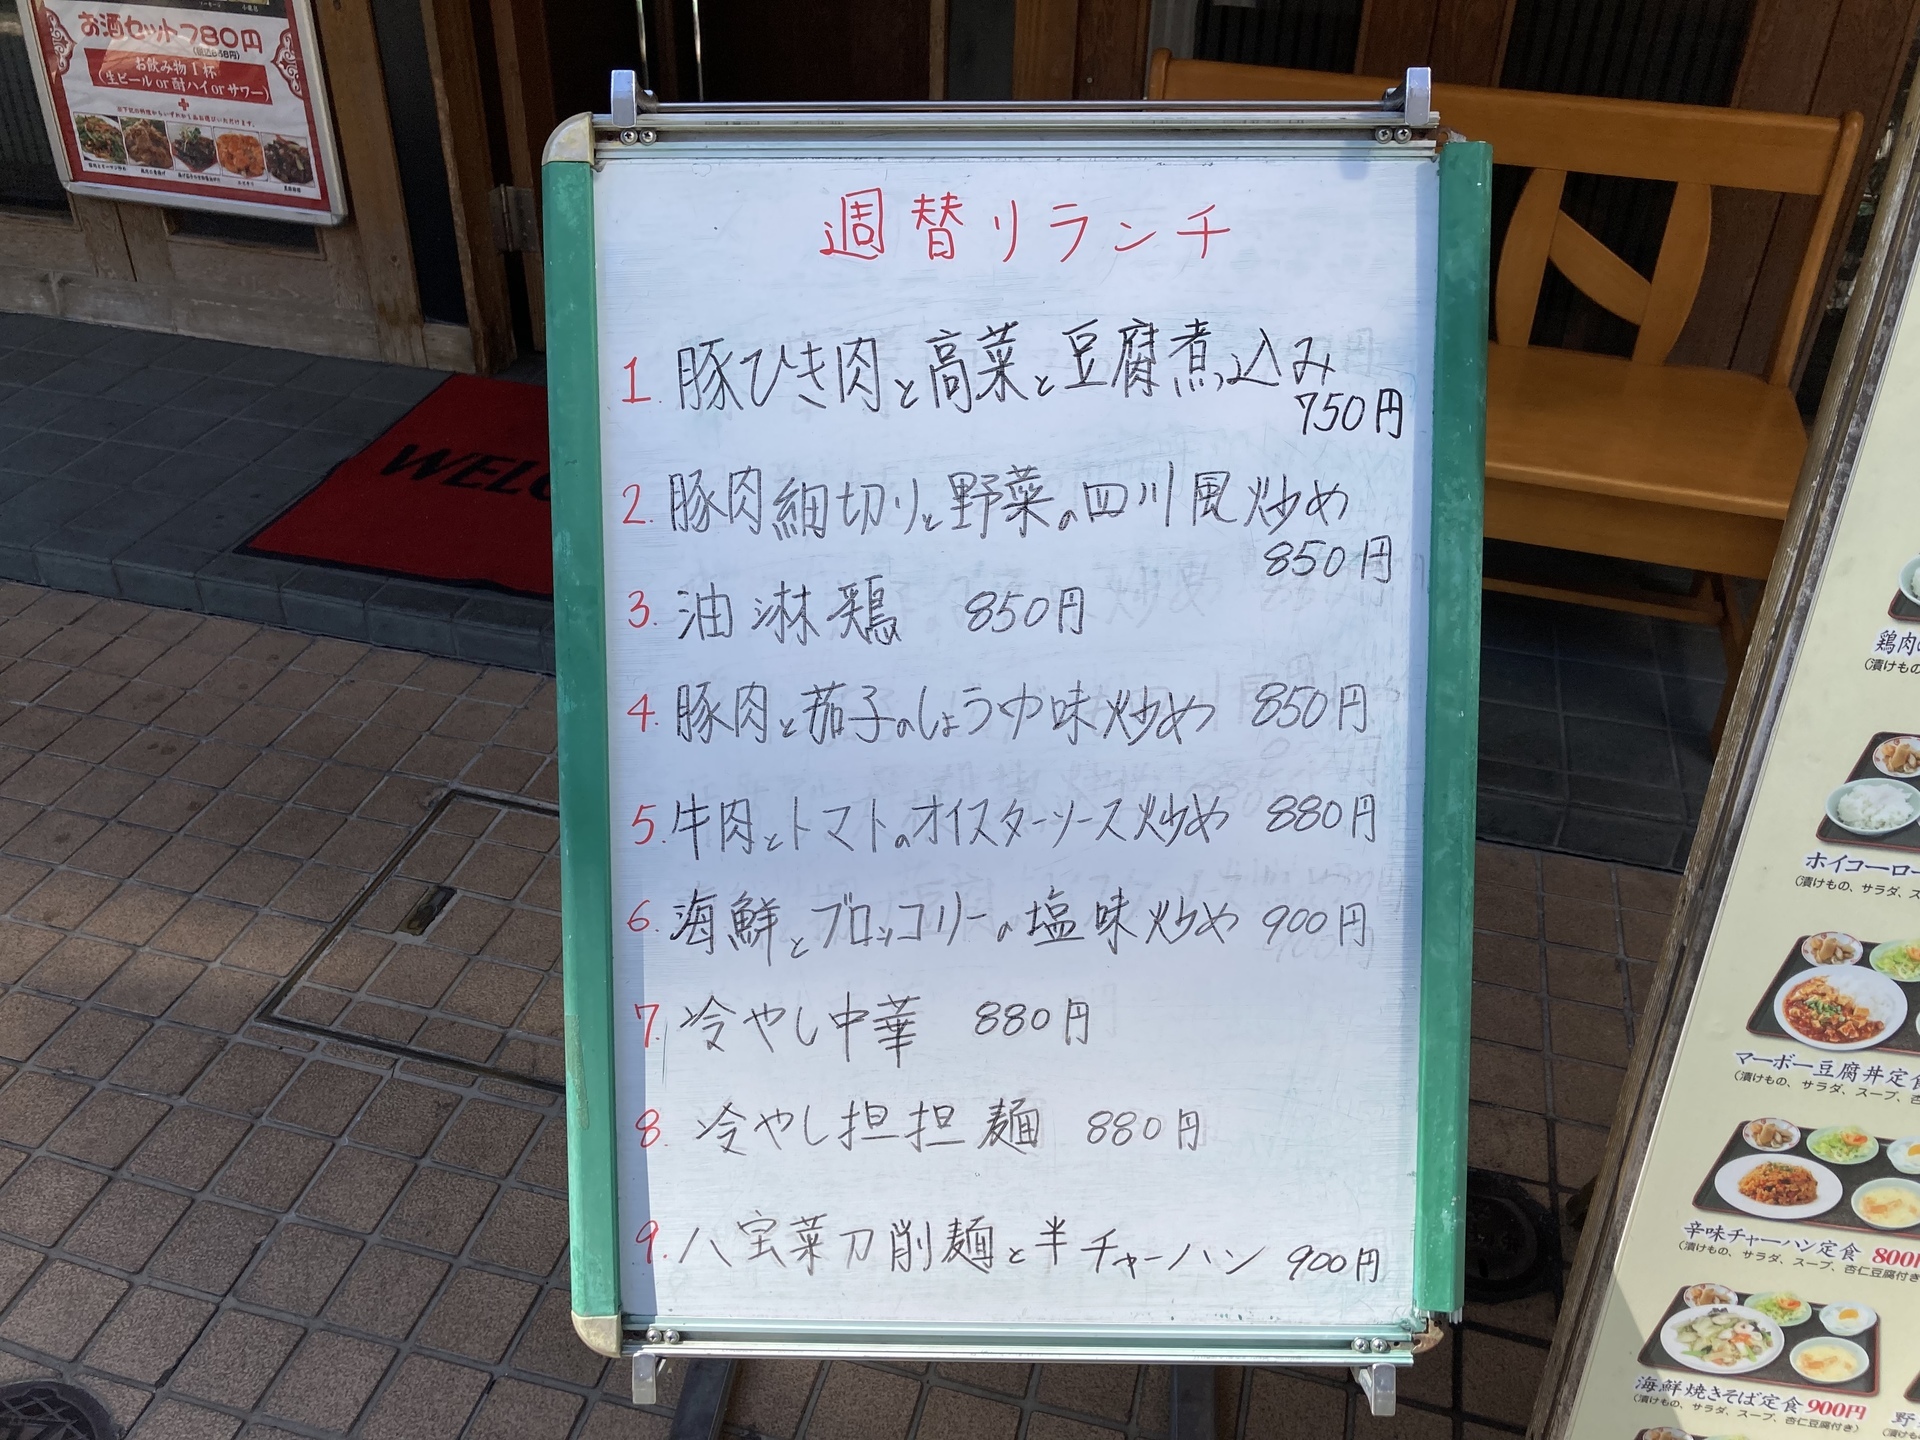 お酒セット780円
お飲み物1杯
(生ビール or 酎ハイ or サワー)
+
週替リランチ
1. 豚ひき肉と高菜と豆腐煮込み
750円
2. 豚肉細切りと野菜の四川風炒め
850円
3. 油淋鶏 850円
4. 豚肉と茄子のしょうゆ味炒め 850円
5. 牛肉とトマトのオイスターソース炒め 880円
6. 海鮮とブロッコリーの塩味炒め 900円
7. 冷やし中華 880円
8. 冷やし担担麺 880円
9. 八宝菜刀削麺と半チャーハン 900円
WELC
鶏肉
(漬けもの
ホイコーロー
(漬けもの、サラダ、ス
マーボー豆腐丼定食
(漬けもの、サラダ、スープ、杏
辛味チャーハン定食 800円
(漬けもの、サラダ、スープ、杏仁豆腐付き
海鮮焼きそば定食 900円
(漬けもの、サラダ、スープ、杏仁豆腐付き)
野
(漬け